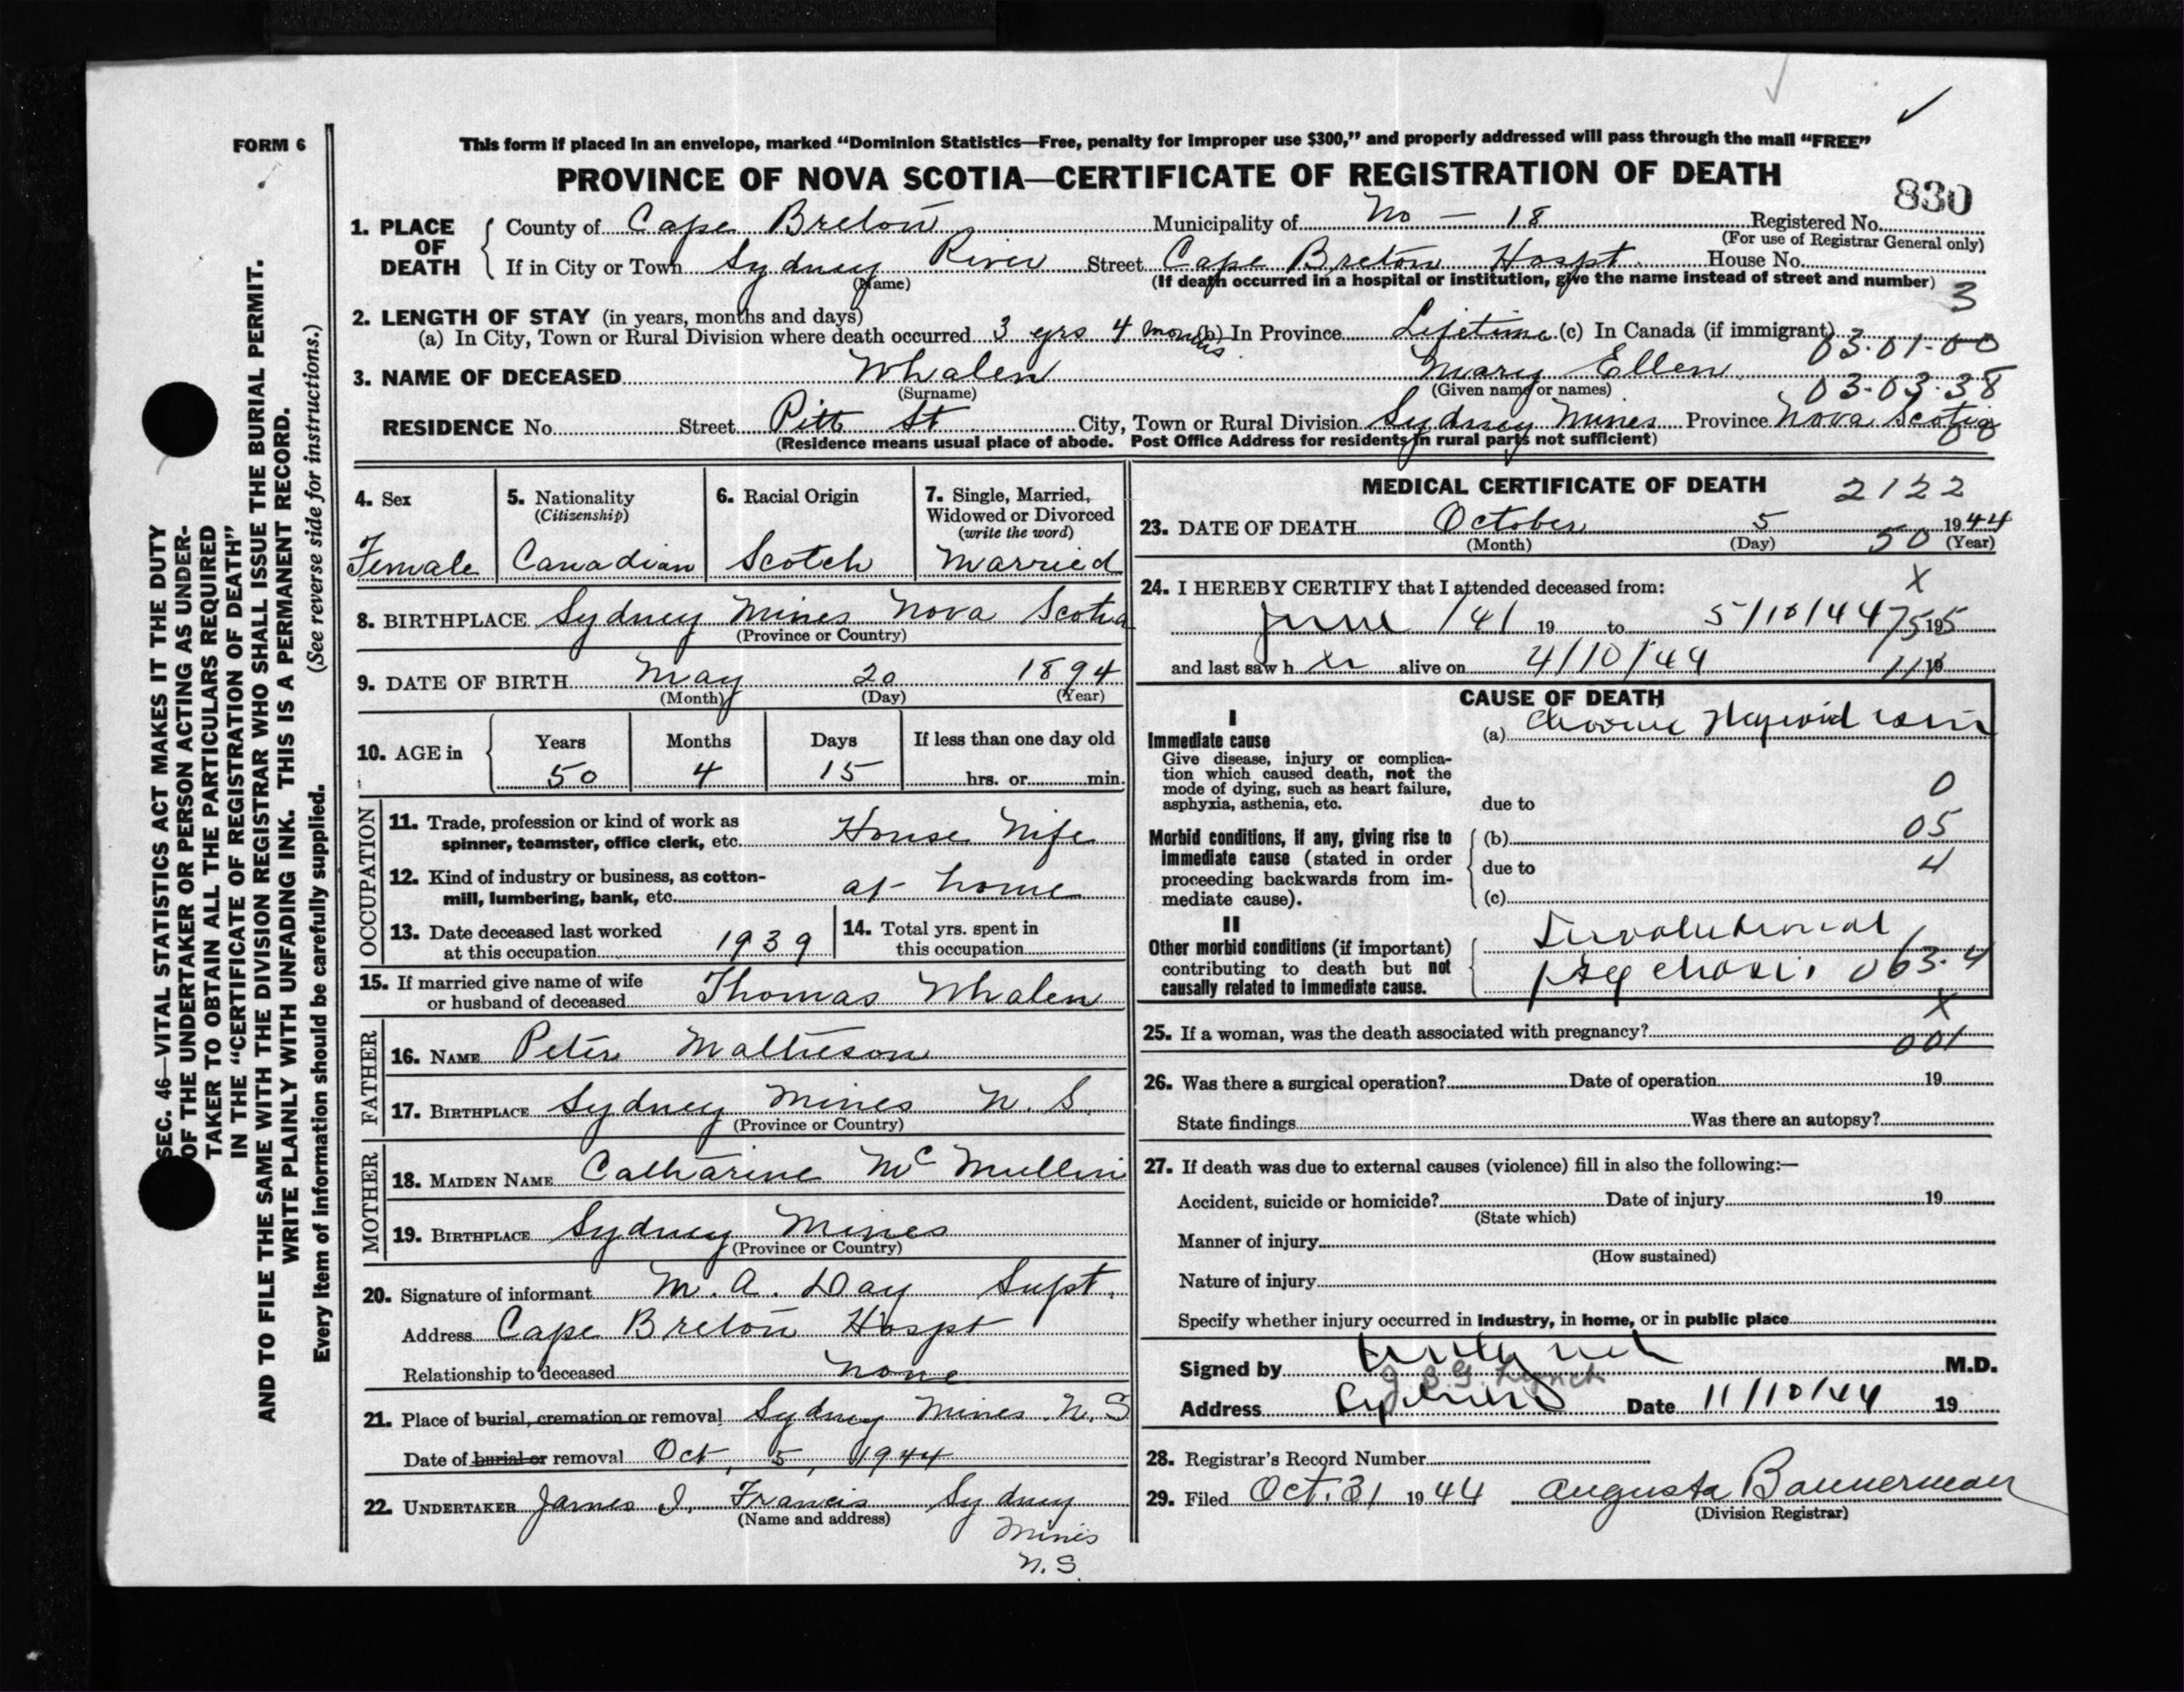 FORM 6
This form if placed in an envelope, marked "Dominion Statistics—Free, penalty for improper use $300," and properly addressed will pass through the mail "FREE"
PROVINCE OF NOVA SCOTIA—CERTIFICATE OF REGISTRATION OF DEATH
830
1. PLACE OF DEATH County of Cape Breton Municipality of No - 18 Registered No.
(For use of Registrar General only)
If in City or Town Sydney River Street Cape Breton Hospt. House No.
(Name) (If death occurred in a hospital or institution, give the name instead of street and number)
3
2. LENGTH OF STAY (in years, months and days)
(a) In City, Town or Rural Division where death occurred 3 yrs 4 months (b) In Province Lifetime (c) In Canada (if immigrant)
03-01-00
3. NAME OF DECEASED Whalen Mary Ellen
(Surname) (Given name or names) 03-03-38
RESIDENCE No. Street Pitt St City, Town or Rural Division Sydney Mines Province Nova Scotia
(Residence means usual place of abode. Post Office Address for residents in rural parts not sufficient)
4. Sex Female
5. Nationality (Citizenship) Canadian
6. Racial Origin Scotch
7. Single, Married, Widowed or Divorced (write the word) Married
8. BIRTHPLACE Sydney Mines Nova Scotia
(Province or Country)
9. DATE OF BIRTH May 20 1894
(Month) (Day) (Year)
10. AGE in Years 50 Months 4 Days 15 If less than one day old hrs. or min.
OCCUPATION
11. Trade, profession or kind of work as
spinner, teamster, office clerk, etc. House Wife
12. Kind of industry or business, as cotton-
mill, lumbering, bank, etc. at home
13. Date deceased last worked
at this occupation 1939
14. Total yrs. spent in
this occupation
15. If married give name of wife
or husband of deceased Thomas Whalen
FATHER
16. NAME Peter Mathieson
17. BIRTHPLACE Sydney Mines N. S.
(Province or Country)
MOTHER
18. MAIDEN NAME Catharine McMullin
19. BIRTHPLACE Sydney Mines
(Province or Country)
20. Signature of informant M. A. Day Supt.
Address Cape Breton Hospt
Relationship to deceased none
21. Place of burial, cremation or removal Sydney Mines N. S
Date of burial or removal Oct, 5, 1944
22. UNDERTAKER James J. Francis Sydney
(Name and address)
Mines
N. S.
MEDICAL CERTIFICATE OF DEATH 2122
23. DATE OF DEATH October 5 1944
(Month) (Day) 50 (Year)
24. I HEREBY CERTIFY that I attended deceased from: X
June /41 19 to 5/10/44 19
and last saw her alive on 4/10/44 19
CAUSE OF DEATH
I
Immediate cause
Give disease, injury or complica-
tion which caused death, not the
mode of dying, such as heart failure,
asphyxia, asthenia, etc.
(a)
0
due to
Morbid conditions, if any, giving rise to
immediate cause (stated in order
proceeding backwards from im-
mediate cause).
(b) 05
due to 4
(c)
II
Other morbid conditions (if important)
contributing to death but not
causally related to immediate cause.
Involutional
psychosis 063.4
X
25. If a woman, was the death associated with pregnancy?
001
26. Was there a surgical operation? Date of operation 19
State findings Was there an autopsy?
27. If death was due to external causes (violence) fill in also the following:—
Accident, suicide or homicide? Date of injury 19
(State which)
Manner of injury
(How sustained)
Nature of injury
Specify whether injury occurred in industry, in home, or in public place
Signed by Lynch M.D.
Address Sydney Date 11/10/44 19
28. Registrar's Record Number
29. Filed Oct. 31 1944 Augusta Bannerman
(Division Registrar)
SEC. 46—VITAL STATISTICS ACT MAKES IT THE DUTY
OF THE UNDERTAKER OR PERSON ACTING AS UNDER-
TAKER TO OBTAIN ALL THE PARTICULARS REQUIRED
IN THE "CERTIFICATE OF REGISTRATION OF DEATH"
AND TO FILE THE SAME WITH THE DIVISION REGISTRAR WHO SHALL ISSUE THE BURIAL PERMIT.
WRITE PLAINLY WITH UNFADING INK. THIS IS A PERMANENT RECORD.
Every item of information should be carefully supplied. (See reverse side for instructions.)